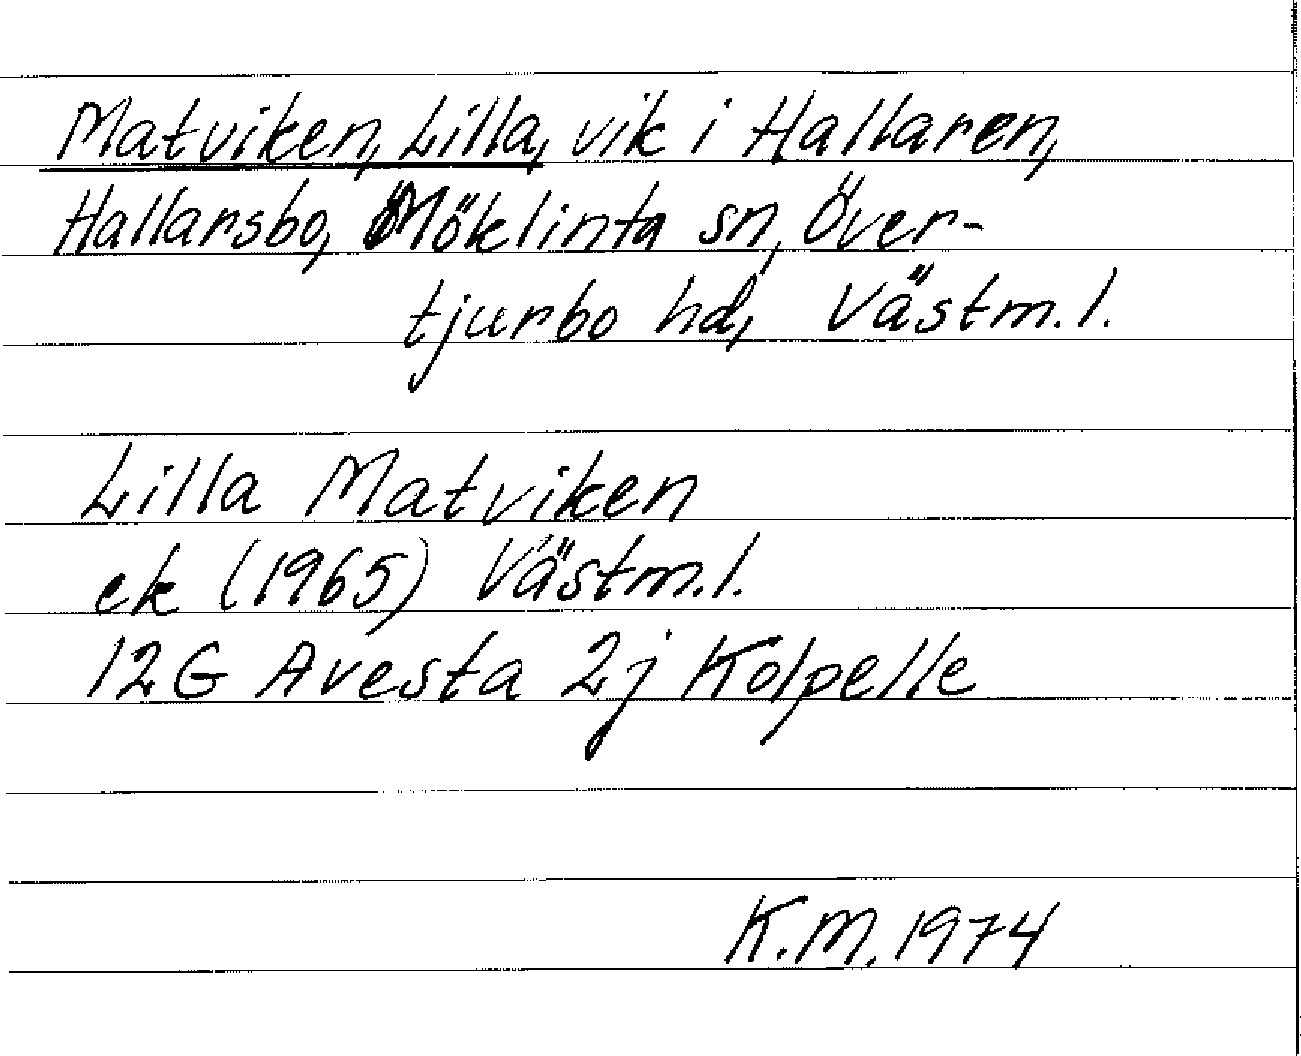 Matviken, Lilla, vik i Hallaren,
Hallarsbo, Möklinta sn, Över-
tjurbo hd, Västm.l.
Lilla Matviken
ek (1965) Västm.l.
12G Avesta 2j Kolpelle
K.M. 1974